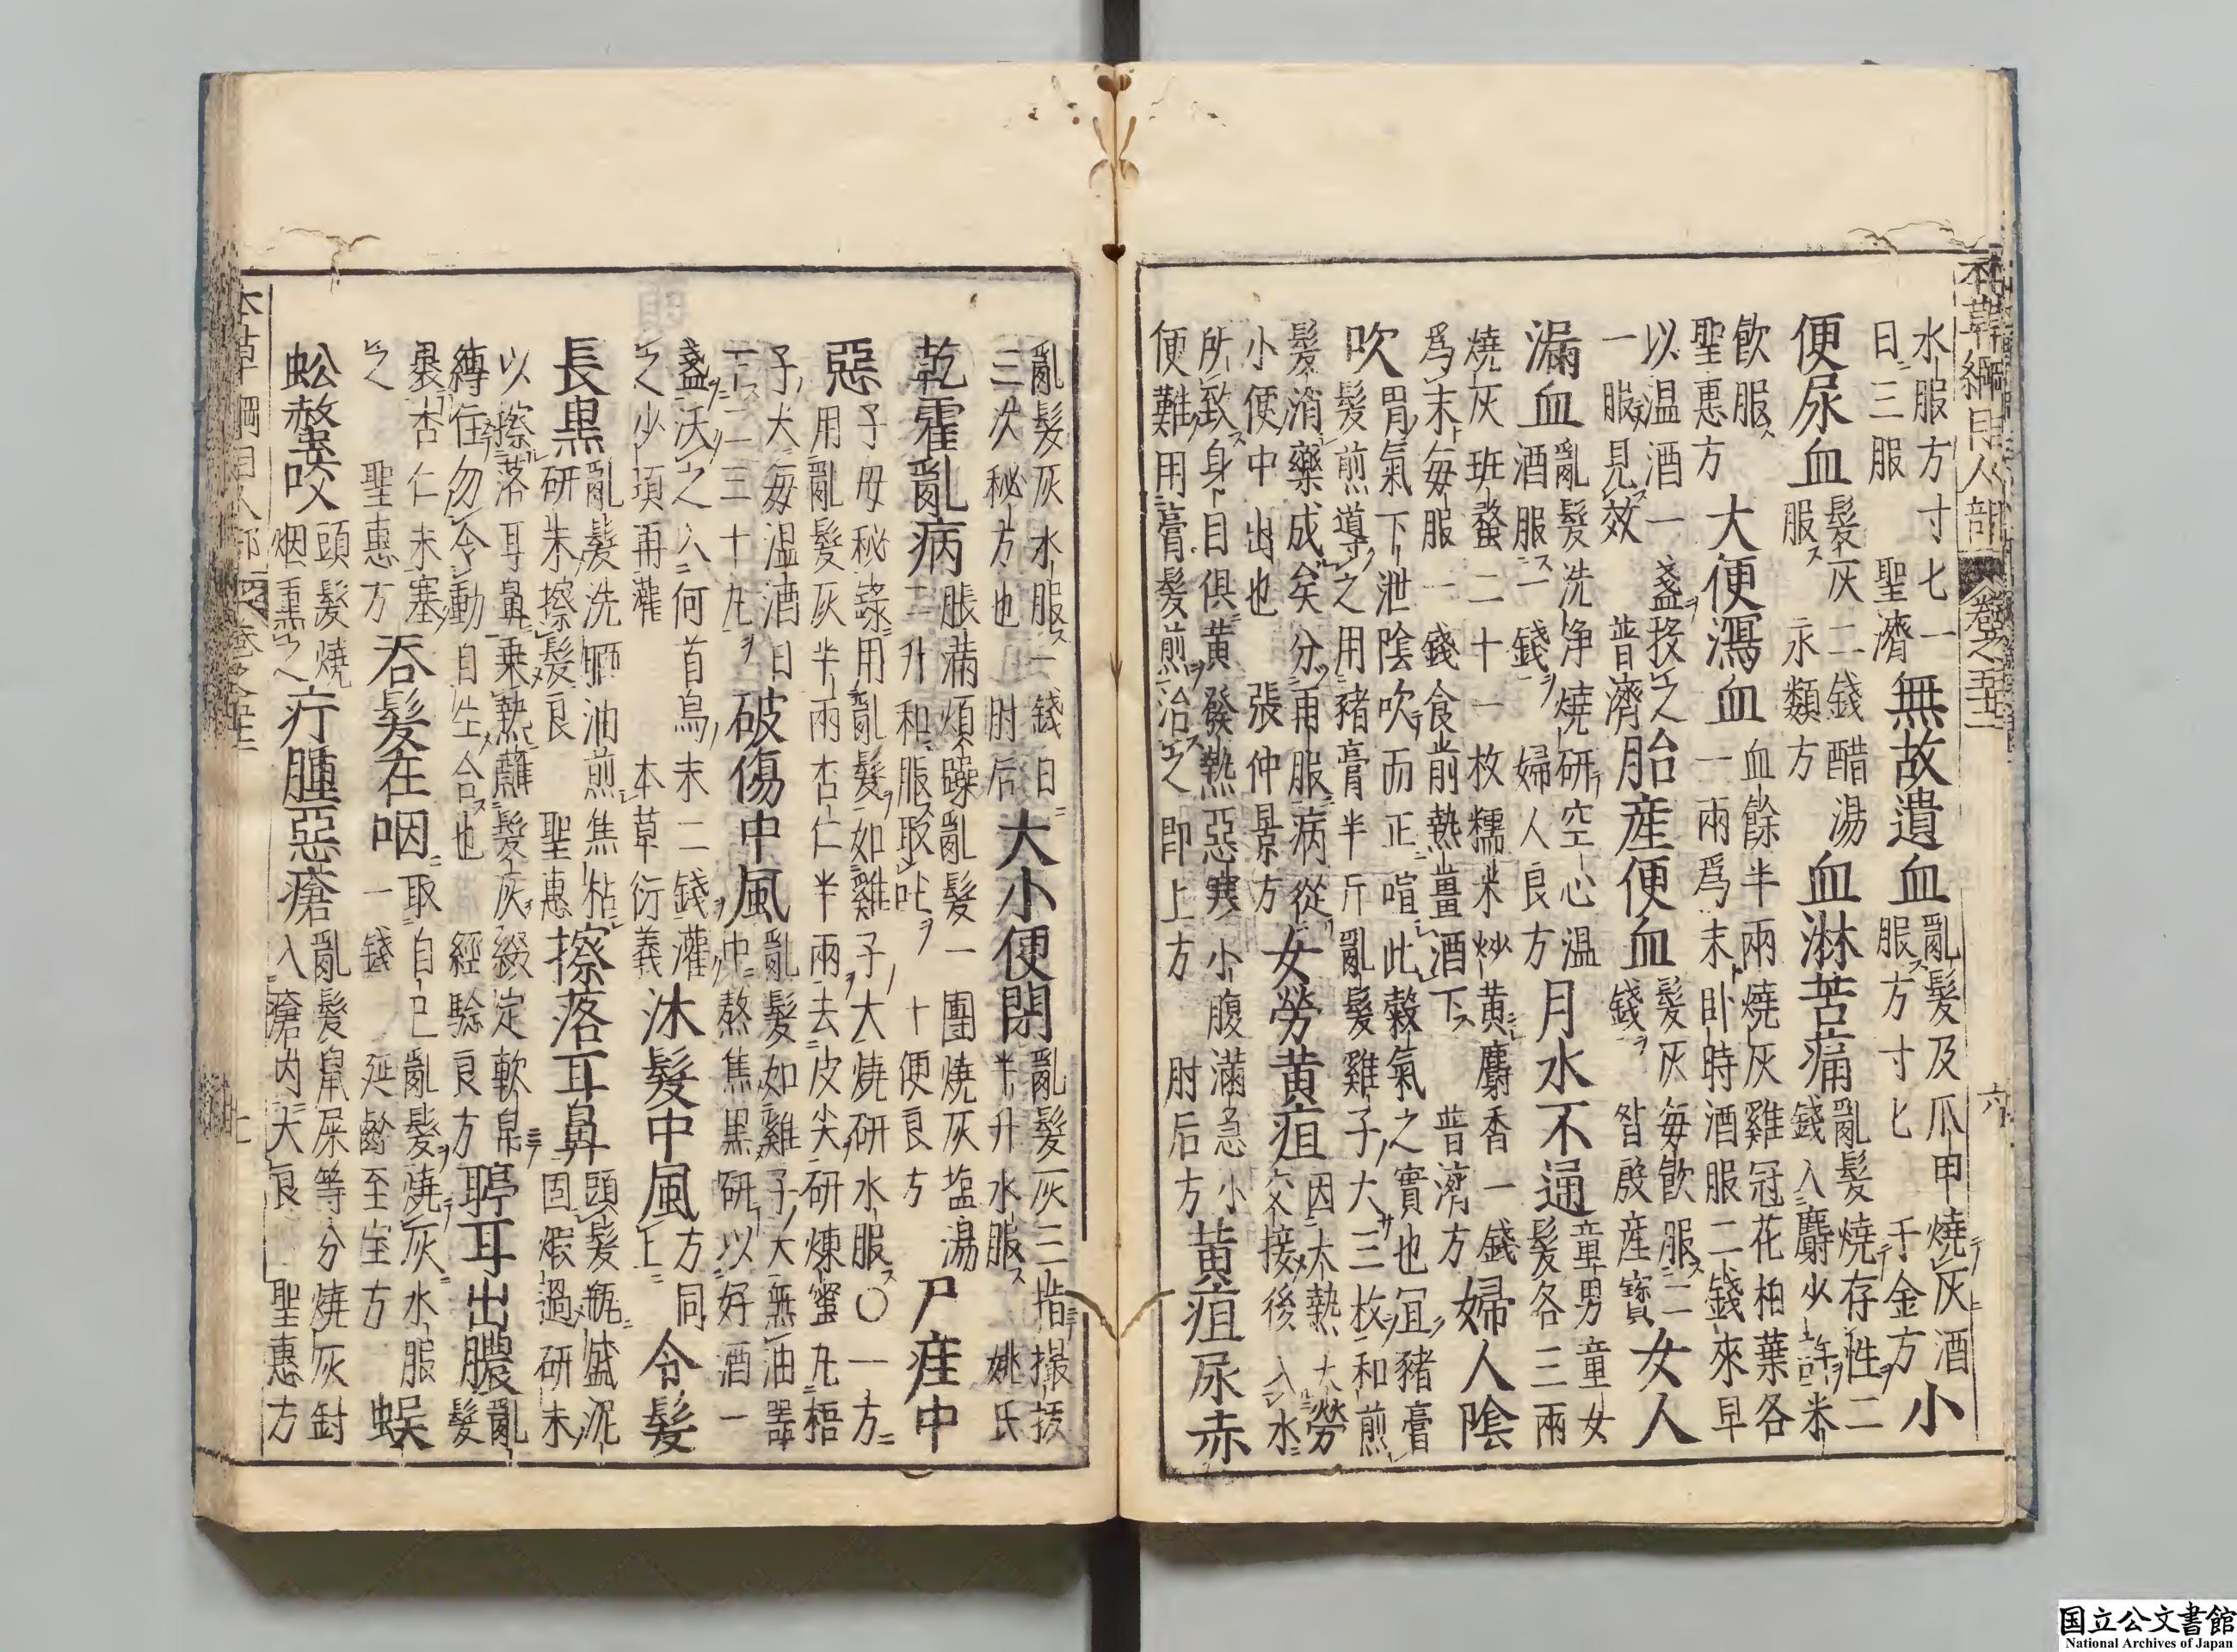 本草綱目人部 卷之五十二 六
水服方寸匕一日三服 聖濟 無故遺血 亂髮及爪甲燒灰酒服方寸匕 千金方 小
便尿血 髮灰二錢醋湯服 永類方 血淋苦痛 亂髮燒存性二錢入麝少許米
飲服 聖惠方 大便瀉血 血餘半兩燒灰雞冠花柏葉各一兩爲末卧時酒服二錢來早
以温酒一盞投之一服見效 普濟 胎産便血 髮灰每飲服二錢 昝殷産寶 女人
漏血 亂髮洗浄燒研空心温酒服一錢 婦人良方 月水不通 童男童女髮各三兩
燒灰班蝥二十一枚糯米炒黄麝香一錢爲末每服一錢食前熱薑酒下 普濟方 婦人陰
吹 胃氣下泄陰吹而正喧此穀氣之實也宜豬膏髮煎導之用豬膏半斤亂髮雞子大三枚和煎
髮消藥成矣分再服病從小便中出也 張仲景方 女勞黄疸 因大熱大勞交接後入水
所致身目俱黄發熱惡寒小腹滿急小便難用膏髮煎治之即上方 肘后方 黄疸尿赤
亂髮灰水服一錢日三次秘方也 肘后 大小便閉 亂髮灰三指撮投半升水服 姚氏
乾霍亂病 脹滿煩躁亂髮一團燒灰塩湯二升和服取吐 十便良方 尸疰中
惡 子母秘録用亂髮如雞子大燒研水服〇一方用亂髮灰半兩杏仁半兩去皮尖研煉蜜丸梧
子大每温酒日下二三十丸 破傷中風 亂髮如雞子大無油器中熬焦黒研以好酒一
盞沃之入何首烏末二錢灌之少頃再灌 本草衍義 沐髮中風 方同上 令髮
長黒 亂髮洗晒油煎焦枯研末擦髮良 聖惠 擦落耳鼻 頭髮瓶盛泥固煅過研末
以擦落耳鼻乗熱蘸髮灰綴定軟帛縛住勿令動自生合也 經驗良方 聤耳出膿 亂髮
裹杏仁末塞之 聖惠方 吞髮在咽 取自己亂髮燒灰水服一錢 延齡至宝方 蜈
蚣螫咬 頭髮燒烟熏之 疔腫惡瘡 亂髮鼠屎等分燒灰針入瘡内大良 聖惠方
本草綱目人部 卷之五十二 七
国立公文書館
National Archives of Japan